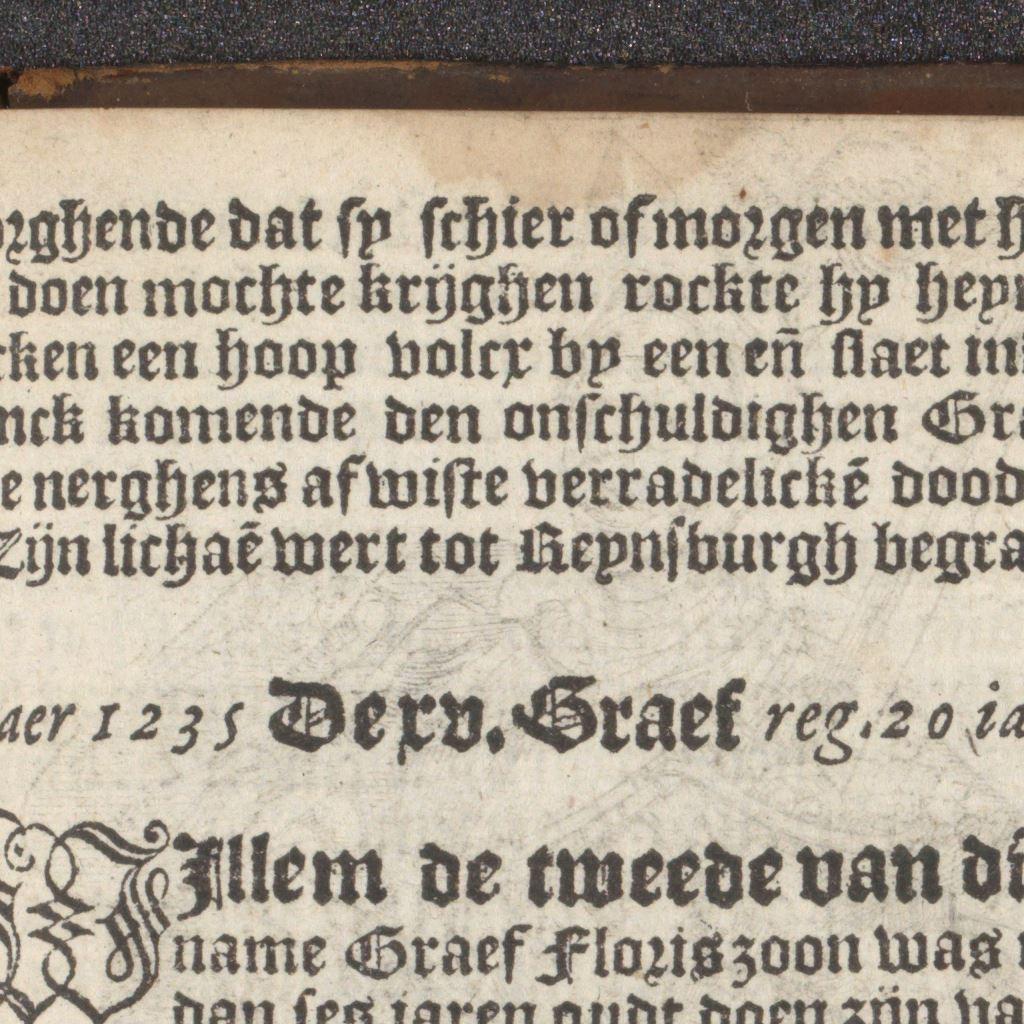 orghende dat sy schier of morgen met h
doen mochte krijghen rockte hy heym
cken een hoop volcx by een eñ slaet in
nck komende den onschuldighen Gra
e nerghens af wiste verradelickē dood
Zijn lichaē wert tot Reynsburgh begra
aer 1235 De xv. Graef reg. 20 ia
WIllem de tweede van dī
name Graef Floriszoon was
dan ses jaren oudt doen zijn va